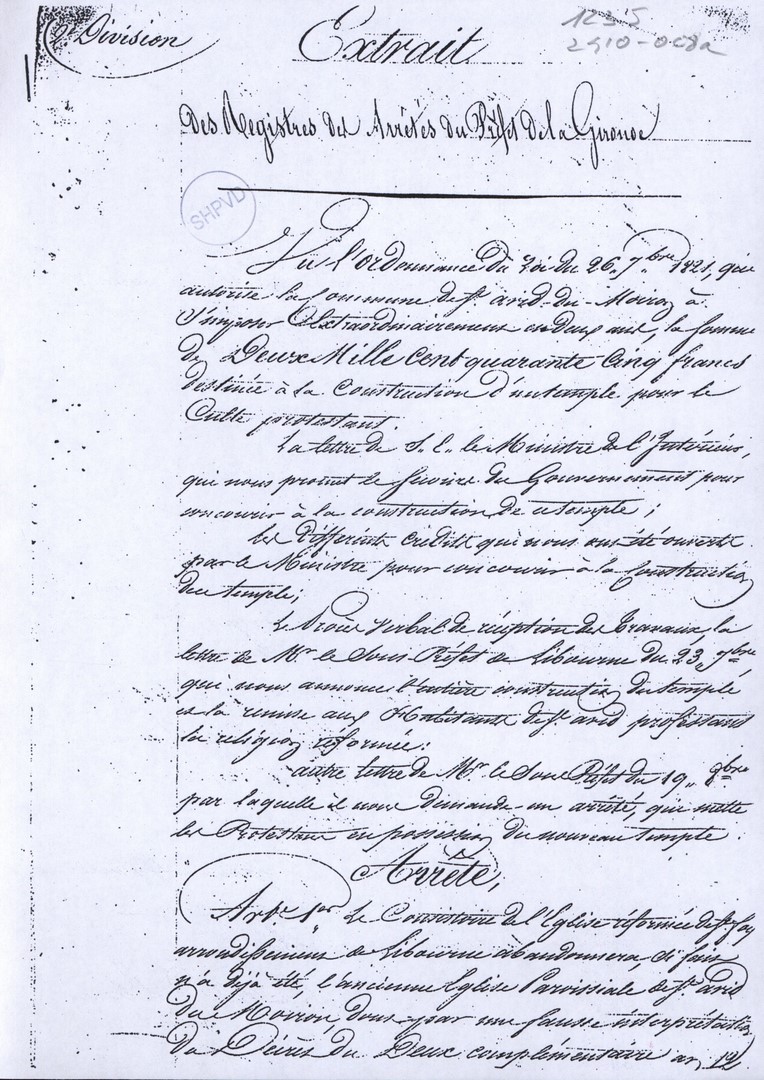 2e Division
1235
2510-008a
Extrait
Des Registres des Arrêtés du Préfet de la Gironde
SHPVD
Vu l'Ordonnance du Roi du 26 7bre 1821, qui
autorise la Commune de St avid-du-Moiron à
s'imposer Extraordinairement en deux ans, la somme
de Deux Mille Cent quarante Cinq francs
destinée à la Construction d'un temple pour le
Culte protestant.
La lettre de S. E. le Ministre de l'Intérieur,
qui nous promet le secours du Gouvernement pour
concourir à la construction de ce temple;
les différents crédits qui nous ont été ouverts
par le Ministre pour concourir à la Construction
du temple;
le Procès Verbal de réception des travaux, la
lettre de Mr le Sous-Préfet de Libourne du 23 7bre
qui nous annonce l'entière construction du temple
et la remise aux Habitants de St avid professant
la religion réformée:
autre lettre de Mr le Sous Préfet du 19 8bre
par laquelle il nous demande un arrêté, qui mette
les Protestans en possession du nouveau temple.
Arrête,
Arte 1er Le Consistoire de l'Eglise réformée de Ste foy
arrondissement de Libourne abandonnera, si fait
n'a déjà été, l'ancienne Eglise Paroissiale de St avid
du Moiron, dont par une fausse interprétation
du Décret du Deux complémentaire an 12